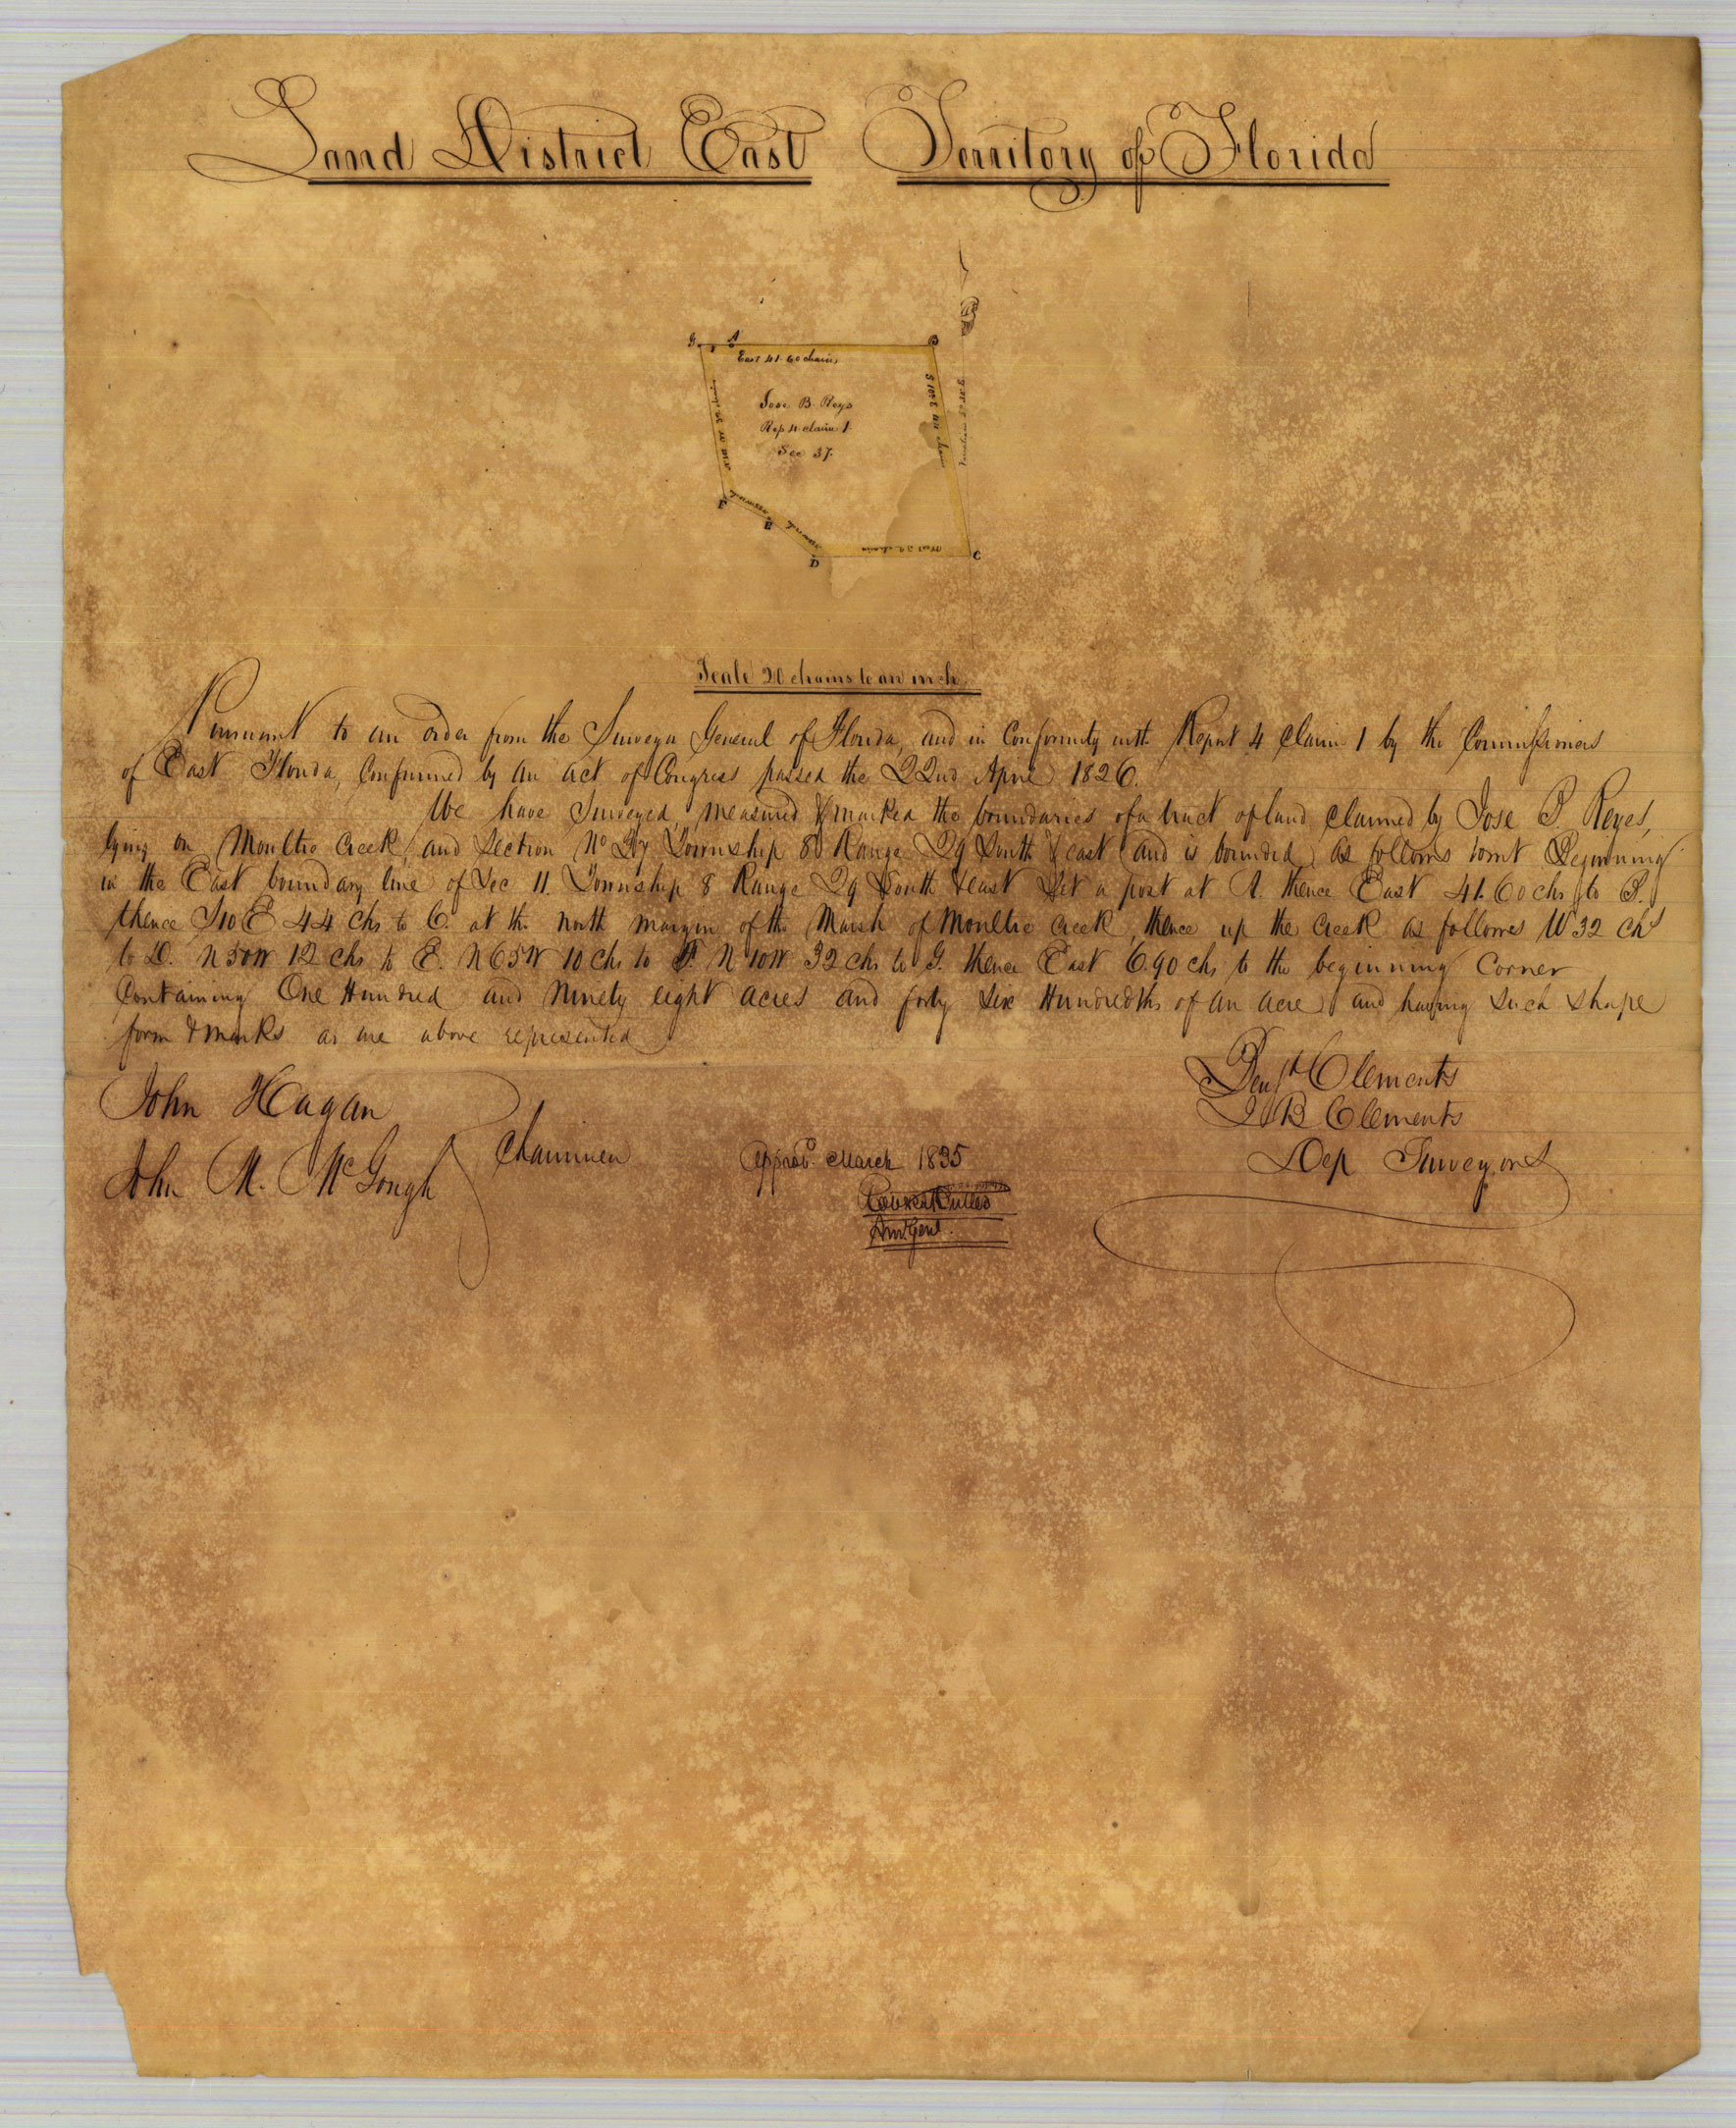 Land District East Territory of Florida
G A B
East 41.60 chains
Jose B. Reys
Rep 4 claim 1.
Sec 37.
S 10 E 44 chains
N 10 W 32 chains
F
E
West 32 chains
D C
Scale 20 chains to an inch
Pursuant to an order from the Surveyor General of Florida, and in Conformity with Report 4 Claim 1 by the Commissioners
of East Florida, Confirmed by an act of Congress passed the 22nd April 1826.
We have Surveyed, measured & marked the boundaries of a tract of land claimed by Jose B. Reyes,
lying on Moultrie Creek, and Section No 37 Township 8 Range 29 South & east and is bounded as follows towit Beginning
in the East boundary line of Sec 11. Township 8 Range 29 South & east Set a post at A. thence East 41.60 chs to B.
thence S10E 44 chs to C. at the north margin of the Marsh of Moultrie Creek, thence up the Creek as follows W 32 chs
to D. N50W 12 chs to E. N65W 10 chs to F. N10W 32 chs to G. thence East 6.90 chs to the beginning Corner
Containing One Hundred and Ninety eight acres and forty Six Hundredths of an acre and having Such Shape
form & marks as are above represented
John Hagan
John M. McGough
Chainmen
Benj Clements
J B Clements
Dep Surveyors
Approvd March 1835
Robert Butler
Sur Genl.